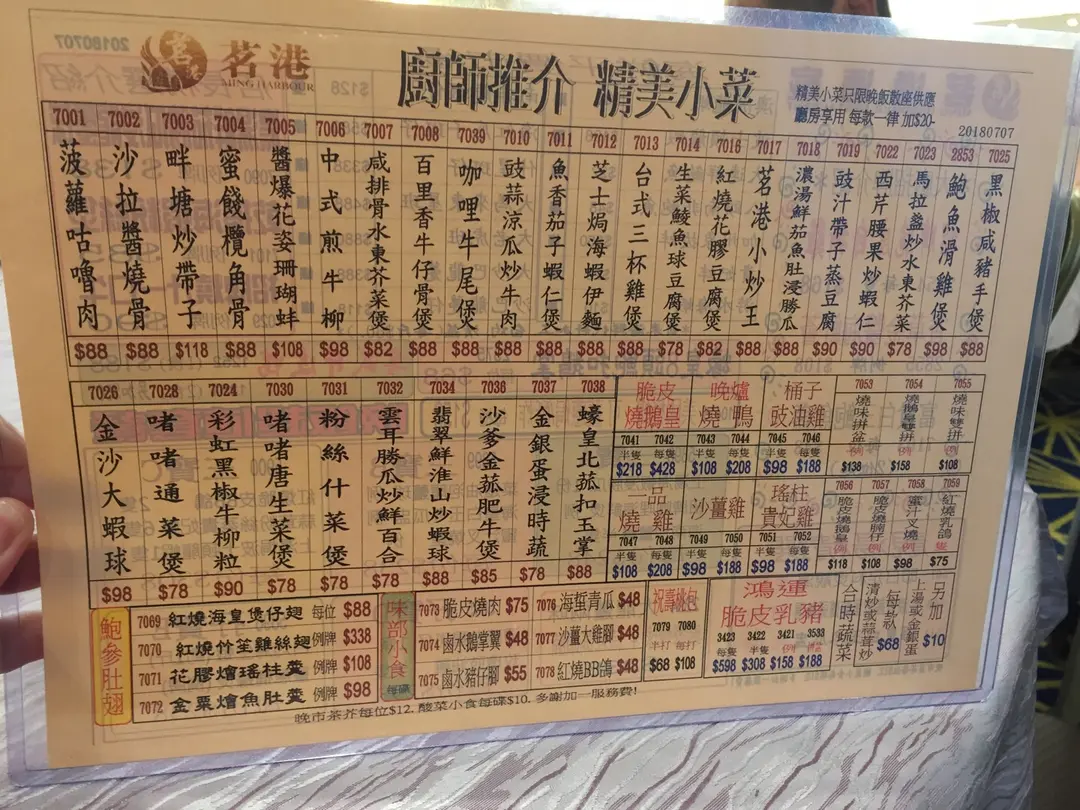 茗港
MING HARBOUR
廚師推介 精美小菜
精美小菜只限晚飯散座供應
廳房享用 每款一律 加$20-
20180707
7001 菠蘿咕嚕肉 $88
7002 沙拉醬燒骨 $88
7003 畔塘炒帶子 $118
7004 蜜餞欖角骨 $88
7005 醬爆花姿珊瑚蚌 $108
7006 中式煎牛柳 $98
7007 咸排骨水東芥菜煲 $82
7008 百里香牛仔骨煲 $88
7009 咖哩牛尾煲 $88
7010 豉蒜涼瓜炒牛肉 $88
7011 魚香茄子蝦仁煲 $88
7012 芝士焗海蝦伊麵 $88
7013 台式三杯雞煲 $88
7014 生菜鯪魚球豆腐煲 $78
7016 紅燒花膠豆腐煲 $82
7017 茗港小炒王 $88
7018 濃湯鮮茄魚肚浸勝瓜 $88
7019 豉汁帶子蒸豆腐 $90
7022 西芹腰果炒蝦仁 $90
7023 馬拉盞炒水東芥菜 $78
2853 鮑魚滑雞煲 $98
7025 黑椒咸豬手煲 $88
7026 金沙大蝦球 $98
7028 啫啫通菜煲 $78
7024 彩虹黑椒牛柳粒 $90
7030 啫啫唐生菜煲 $78
7031 粉絲什菜煲 $78
7032 雲耳勝瓜炒鮮百合 $78
7034 翡翠鮮淮山炒蝦球 $88
7036 沙爹金菇肥牛煲 $85
7037 金銀蛋浸時蔬 $78
7038 蠔皇北菇扣玉掌 $88
脆皮燒鵝皇
7041 半隻 $218
7042 每隻 $428
晚爐燒鴨
7043 半隻 $108
7044 每隻 $208
桶子豉油雞
7045 半隻 $98
7046 每隻 $188
一品燒雞
7047 半隻 $108
7048 每隻 $208
沙薑雞
7049 半隻 $98
7050 每隻 $188
瑤柱貴妃雞
7051 半隻 $98
7052 每隻 $188
7053 燒味拼盆 $138
7054 燒鵝皇雙拼 $158
7055 燒味雙拼 $108
7056 脆皮燒鵝皇 例 $118
7057 脆皮燒腩仔 例 $108
7058 蜜汁叉燒 例 $98
7059 紅燒乳鴿 隻 $75
鮑參肚翅
7069 紅燒海皇煲仔翅 每位 $88
7070 紅燒竹笙雞絲翅 例牌 $338
7071 花膠燴瑤柱羹 例牌 $108
7072 金粟燴魚肚羹 例牌 $98
味部小食 每碟
7073 脆皮燒肉 $75
7074 鹵水鵝掌翼 $48
7075 鹵水豬仔腳 $55
7076 海蜇青瓜 $48
7077 沙薑大雞腳 $48
7078 紅燒BB鴿 $48
祝壽桃包
7079 半打 $68
7080 每打 $108
鴻運脆皮乳豬
3423 每隻 $598
3422 半隻 $308
3421 例 $158
3533 $188
合時蔬菜
清炒或蒜茸炒
每款 $68
上湯或金銀蛋
另加 $10
晚市茶芥每位$12. 酸菜小食每碟$10. 多謝加一服務費!